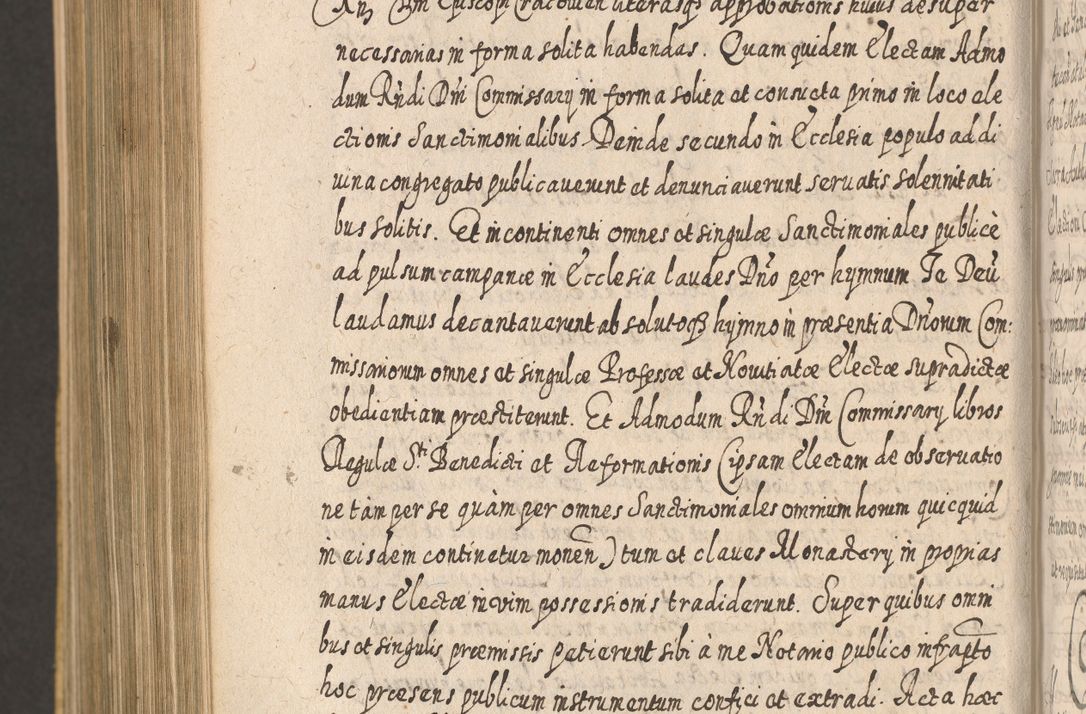 Rñ Dñi Episcopi Cracovien literasq̃ approbationis huius desuper
necessarias in forma solita habendas. Quam quidem Electam Admo
dum Rñdi Dñi Commissarÿ in forma solita et consueta primo in loco ele
ctionis Sanctimonialibus Deinde secundo in Ecclesia populo ad di
uina congregato publicauerunt et denunciauerunt seruatis solennitati
bus solitis. Et incontinenti omnes et singulæ Sanctimoniales publicè
ad pulsum campanæ in Ecclesia laudes Dño per hymnum Te Deũ
laudamus decantauerunt absolutoq̃ hyjmno in præsentia Dñorum Com:
missariorum omnes et singulæ Professæ et Nouitiatæ Electæ supradictæ
obedientiam præstiterunt. Et Admodum Rñdi Dñi Commissarÿ libros
Regulæ Sti Benedicti et Reformationis (ipsam Electam de obseruatio
ne tàm per se quàm per omnes Sanctimoniales omnium horum quicquid
in eisdem continetur monen̄) tum et claues Monasterÿ in proprias
manus Electæ in vim possessionis tradiderunt. Super quibus omni
bus et singulis præmissis petierunt sibi à me Notario publico infrapto
hoc præsens publicum instrumentum confici et extradi. Acta hæc